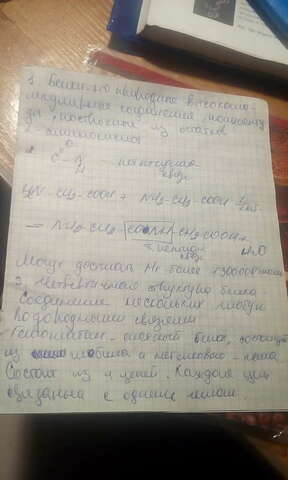 1. Белки это природные высокомо-
лекулярные соединения, молекулы
построены из остатков
α-аминокислот
O
C - N - пептидная
H связь
H₂N-CH₂-COOH + NH₂-CH₂-COOH
= NH₂-CH₂-CONH-CH₂COOH +
пептидн H₂O
связь
Могут достигать Mr более
3. Четвертичная структура белка
Соединение нескольких
водородными связями
Гемоглобин - сложный белок, состоящий
из глобина и - гема
Состоит из 4 цепей. Каждая цепь
связана с одним гемом.